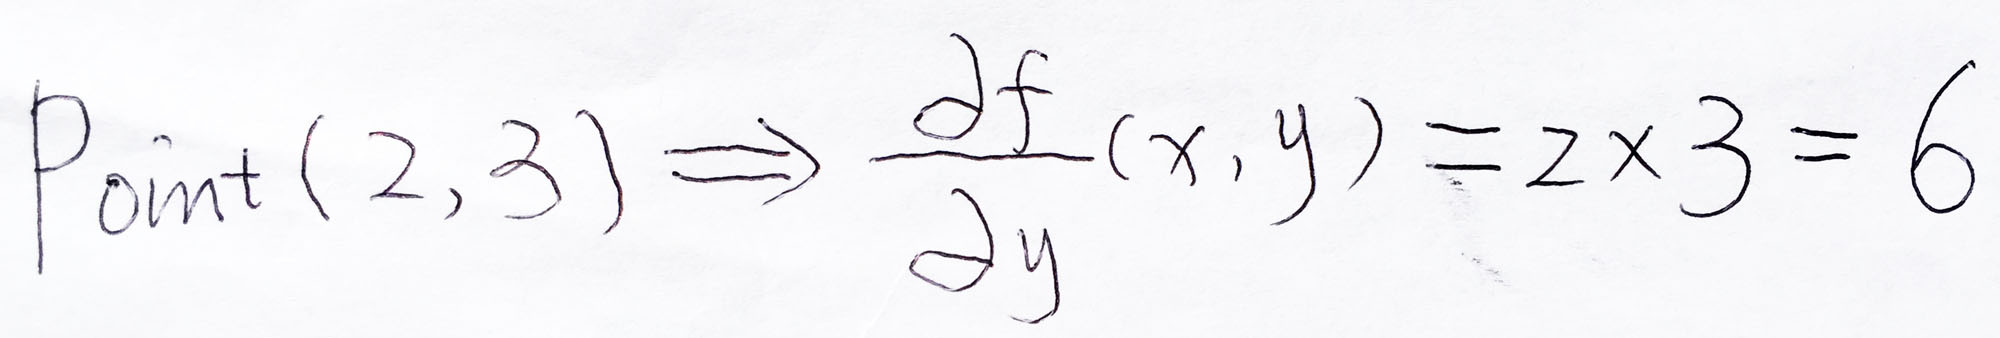 Point (2, 3) ⟹ ∂f/∂y (x, y) = 2 × 3 = 6